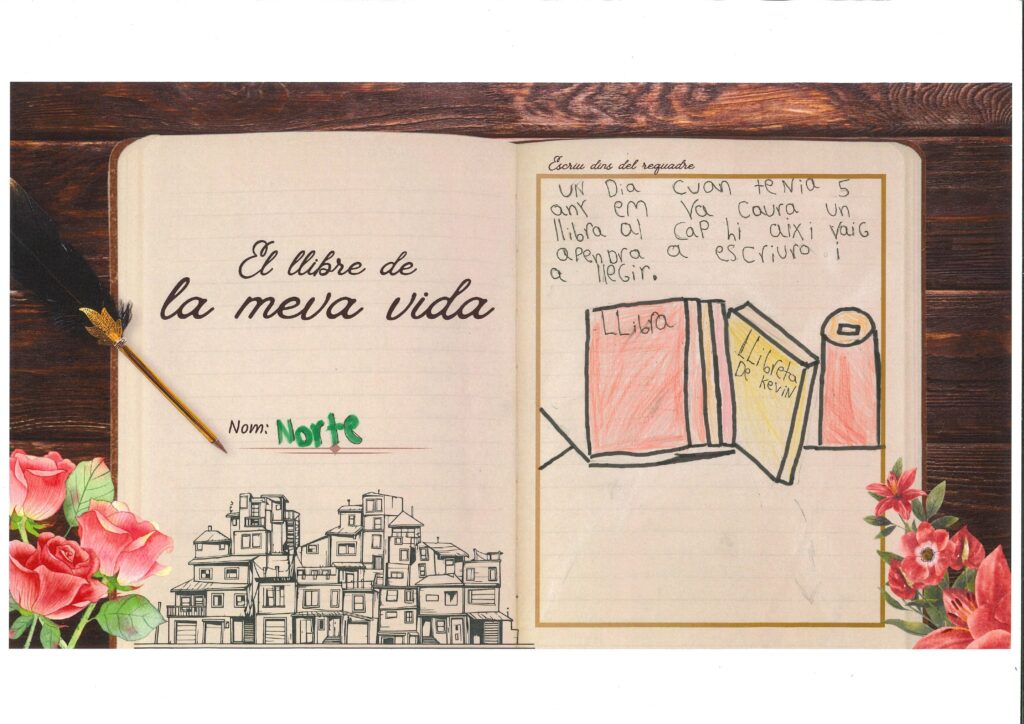 El llibre de
la meva vida
Nom: Norte
Escriu dins del requadre
UN Dia cuan tenia 5
anY em va caura un
llibra al caP hi aixi vaig
apendra a escriuro i
a llegir.
LLibra
LLibreta
De kevin